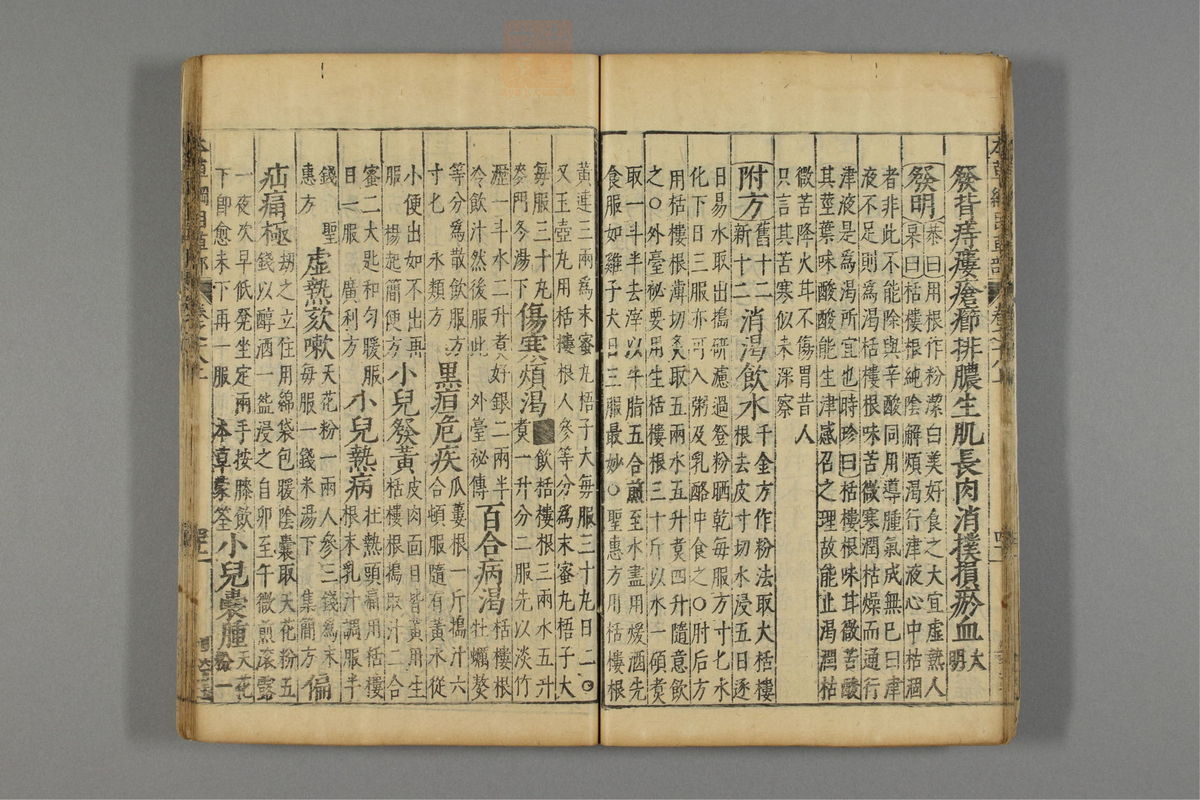 發背痔瘻瘡癤排膿生肌長肉消撲損瘀血大明
發明恭曰用根作粉潔白美好食之大宜虛熱人
杲曰栝樓根純陰解煩渴行津液心中枯涸
者非此不能除與辛酸同用導腫氣成無已曰津
液不足則爲渴栝樓根味苦微寒潤枯燥而通行
津液是爲渴所宜也時珍曰栝樓根味甘微苦酸
其莖葉味酸酸能生津感召之理故能止渴潤枯
微苦降火甘不傷胃昔人
只言其苦寒似未深察
附方舊十二新十二消渴飲水千金方作粉法取大栝樓
根去皮寸切水浸五日逐
日易水取出搗研濾過登粉晒乾每服方寸匕水
化下日三服亦可入粥及乳酪中食之〇肘后方
用栝樓根薄切炙取五兩水五升煑四升隨意飲
之〇外臺秘要用生栝樓根三十斤以水一碩煑
取一斗半去滓以牛脂五合煎至水盡用煖酒先
食服如雞子大日三服最妙〇聖惠方用栝樓根
黃連三兩爲末蜜丸梧子大每服三十丸日二〇
又玉壺丸用栝樓根人參等分爲末蜜丸梧子大
每服三十丸
麥門冬湯下傷寒煩渴飲栝樓根三兩水五升
煑一升分二服先以淡竹
瀝一斗水二升煑好銀二兩半
冷飲汁然後服此外臺秘傳百合病渴栝樓根
牡蠣熬
等分爲散飲服方
寸匕永類方黑疸危疾瓜蔞根一斤搗汁六
合頓服隨有黃水從
小便出如不出再
服楊起簡便方小兒發黃皮肉面目皆黃用生
栝樓根搗取汁二合
蜜二大匙和勻暖服
日一服廣利方小兒熱病壯熱頭痛用栝樓
根末乳汁調服半
錢聖
惠方虛熱欬嗽天花粉一兩人參三錢爲末
每服一錢米湯下集簡方偏
疝痛極刼之立住用綿袋包暖陰囊取天花粉五
錢以醇酒一盌浸之自卯至午微煎滾露
一夜次早低凳坐定兩手按膝飲
下即愈未下再一服本草蒙筌小兒囊腫天花
粉一